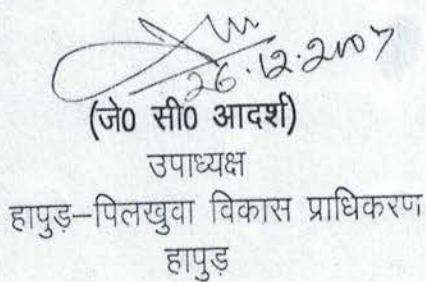 26.12.2007
(जे0 सी0 आदर्श)
उपाध्यक्ष
हापुड़–पिलखुवा विकास प्राधिकरण,
हापुड़